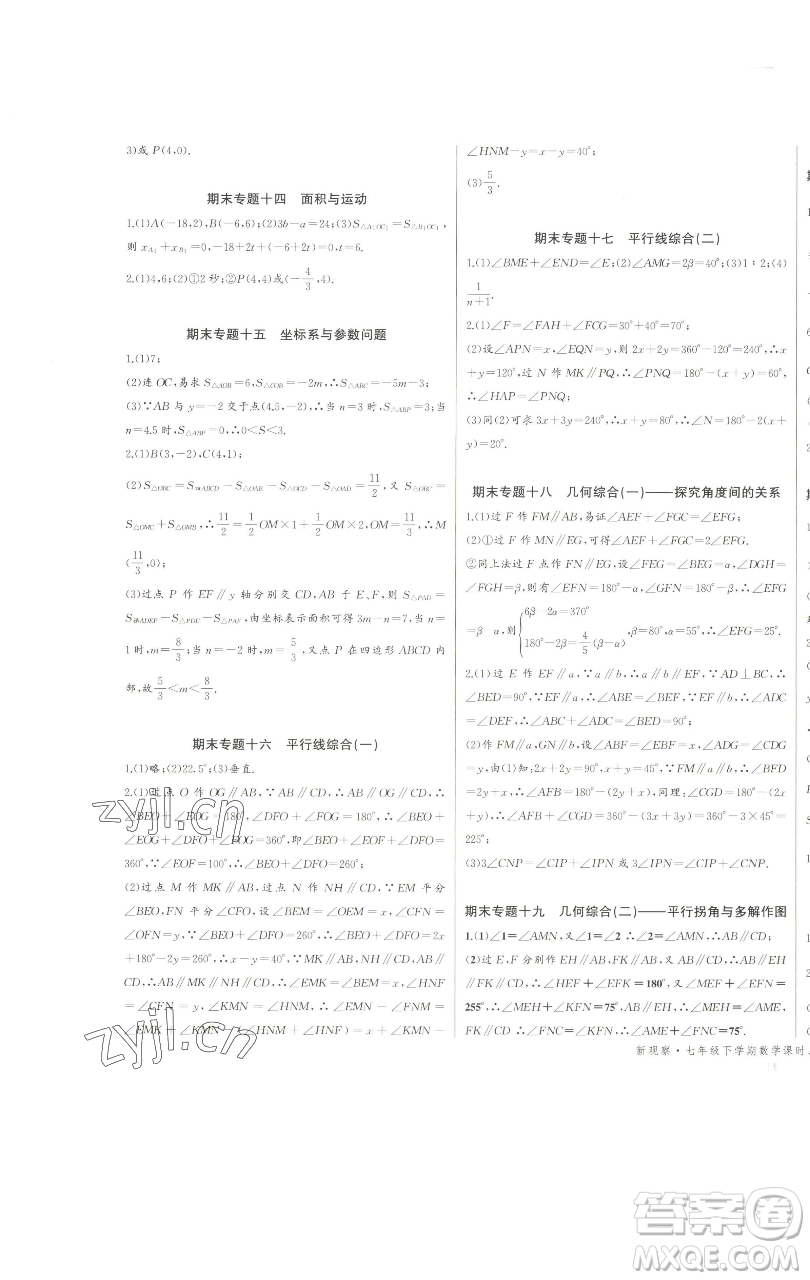 3)或 P(4,0).
期末专题十四 面积与运动
1.(1)A(-18,2),B(-6,6);(2)3b-a=24;(3)S△A₁OC₁=S△B₁OC₁,
则 x_A₁+x_B₁=0,-18+2t+(-6+2t)=0,t=6.
2.(1)4,6;(2)①2 秒;②P(4,4)或(-4/3,4).
期末专题十五 坐标系与参数问题
1.(1)7;
(2)连 OC,易求 S△AOB=6,S△COB=-2m,∴S△ABC=-5m-3;
(3)∵AB 与 y=-2 交于点(4.5,-2),∴当 n=3 时,S△ABP=3;当
n=4.5 时,S△ABP=0,∴0<S<3.
2.(1)B(3,-2),C(4,1);
(2)S△OBC=S四边形ABCD-S△OAB-S△OCD-S△OAD=11/2,又 S△OBC=
S△OMC+S△OMB,∴11/2=1/2OM×1+1/2OM×2,∴OM=11/3,∴M
(11/3,0);
(3)过点 P 作 EF∥y 轴分别交 CD,AB 于 E、F 两点,∵S△PAD=
S梯形ADEF-S△PDE-S△PAF,由坐标表示面积可得 3m-n=7,当 n=
1时,m=8/3;当 n=-2 时,m=5/3,又点 P 在四边形 ABCD 内
部,故5/3<m<8/3.
期末专题十六 平行线综合(一)
1.(1)略;(2)22.5°;(3)垂直.
2.(1)过点 O 作 OG∥AB,∵AB∥CD,∴AB∥OG∥CD,∴
∠BEO+∠EOG=180°,∠DFO+∠FOG=180°,∴∠BEO+
∠EOG+∠DFO+∠FOG=360°,即∠BEO+∠EOF+∠DFO=
360°,∵∠EOF=100°,∴∠BEO+∠DFO=260°;
(2)过点 M 作 MK∥AB,过点 N 作 NH∥CD,∵EM 平分
∠BEO,FN 平分∠CFO,设∠BEM=∠OEM=x,∠CFN=
∠OFN=y,∵∠BEO+∠DFO=260°,∴∠BEO+∠DFO=2x
+180°-2y=260°,∴x-y=40°,∵MK∥AB,NH∥CD,AB∥CD,
∴AB∥MK∥NH∥CD,∴∠EMK=∠BEM=x,∠HNF
=∠CFN=y,∠KMN=∠HNM,∴∠EMN-∠FNM=
∠EMK+∠KMN-(∠HNM+∠HNF)=x+∠KMN-
∠HNM-y=x-y=40°;
(3)5/3.
期末专题十七 平行线综合(二)
1.(1)∠BME+∠END=∠E;(2)∠AMG=2β=40°;(3)1∶2;(4)
1/(n+1).
2.(1)∠F=∠FAH+∠FCG=30°+40°=70°;
(2)设∠APN=x,∠EQN=y,则 2x+2y=360°-120°=240°,∴x
+y=120°,过 N 作 MK∥PQ,∴∠PNQ=180°-(x+y)=60°,
∴∠HAP=∠PNQ;
(3)同(2)可求 3x+3y=240°,∴x+y=80°,∴∠N=180°-2(x+
y)=20°.
期末专题十八 几何综合(一)——探究角度间的关系
1.(1)过 F 作 FM∥AB,易证∠AEF+∠FGC=∠EFG;
(2)①过 F 作 MN∥EG,可得∠AEF+∠FGC=2∠EFG.
②同上法过 F 点作 FN∥EG,设∠FEG=∠BEG=α,∠DGH=
∠FGH=β,则有∠EFN=180°-α,∠GFN=180°-2β,∴∠EFG
=β-α,则{6β-2α=370° 180°-2β=4/5(β-α),β=80°,α=55°,∴∠EFG=25°.
2.(1)过 E 作 EF∥a,∵a∥b,∴a∥b∥EF,∵AD⊥BC,∴
∠BED=90°,∵EF∥a,∴∠ABE=∠BEF,∵EF∥b,∴∠ADC
=∠DEF,∴∠ABE+∠ADC=∠BED=90°;
(2)作 FM∥a,GN∥b,设∠ABF=∠EBF=x,∠ADG=∠CDG
=y,由(1)知:2x+2y=90°,x+y=45°,∵FM∥a∥b,∴∠BFD
=2y+x,∴∠AFB=180°-(2y+x),同理:∠CGD=180°-(2x+
y),∴∠AFB+∠CGD=360°-(3x+3y)=360°-3×45°=
225°;
(3)3∠CNP=∠CIP+∠IPN 或3∠IPN=∠CIP+∠CNP.
期末专题十九 几何综合(二)——平行拐角与多解作图
1.(1)∠1=∠AMN,又∠1=∠2,∴∠2=∠AMN,AB∥CD;
(2)过E,F分别作 EH∥AB,FK∥AB,又 AB∥CD,∴AB∥EH
∥FK∥CD,∴∠HEF+∠EFK=180°,又∠MEF+∠EFN=
255°,∴∠MEH+∠KFN=75°,又 AB∥EH,∴∠MEH=∠AME,
FK∥CD,∴∠KFN=∠FNC,∴∠AME+∠FNC=75°.
新观察·七年级下学期数学课时
zyjl.cn
zyjl.cn
答案圈
MXQE.COM